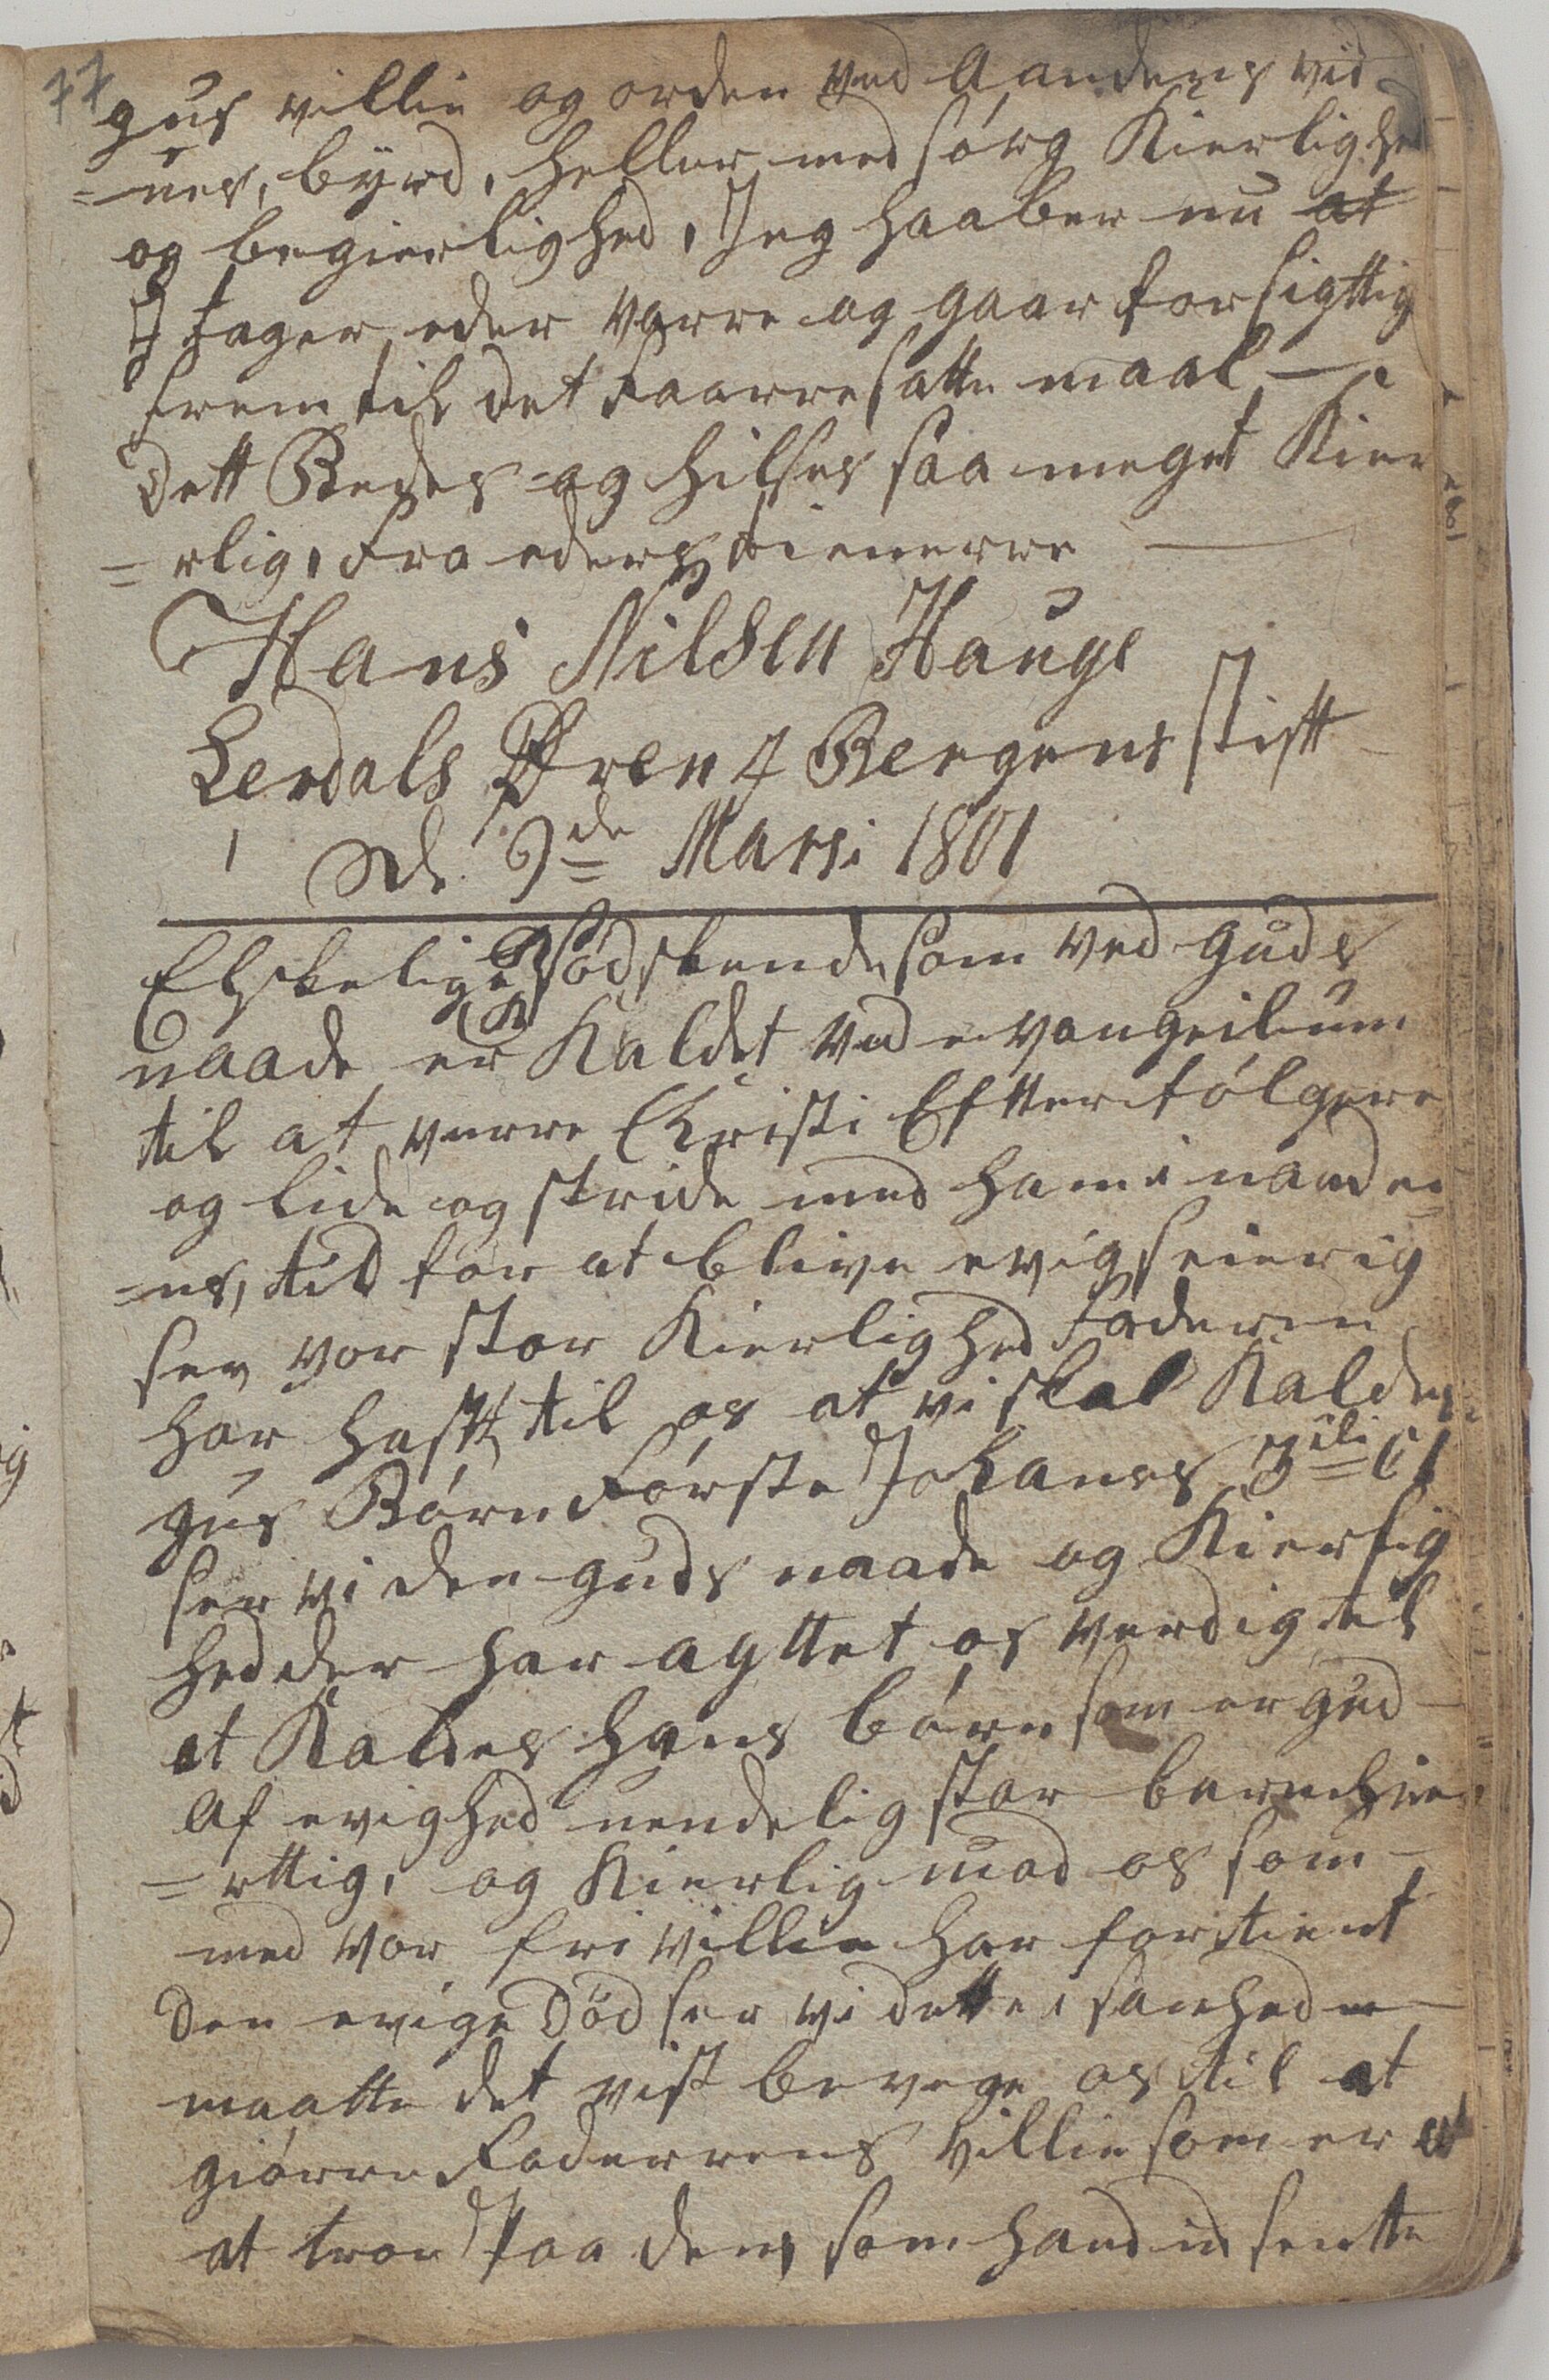 77
gus villie og orden ved Aandens vid
=nes, byrd, heller med sórg Kierlighed
og begierlighed, Jeg haaber nu at
I tager eder varre og gaar forsigttig
frem til det foorresatte maal —
Dett Bedes og hilses saa meget Kier
=rlig, fra eders tienerre —
Hans Nilsen Hauge
Lerdals Øren J Bergens stift
d. 9de Marsi 1801
Elskelige Sødskende som ved Guds
naade er Kaldet ved evangeilum
til at verre Christi Eftterfólgere
og lide og stride med ham i naaden
=es, tid for at blive evig seierig
ser vor stor Kierlighed Faderen
har hafft til os at vi skal Kaldes
gus Bórn Fórste Johanes 3
ser vi den guds naade og Kierlig
hed der har agttet os verdig til
at Kaldes hans bórn som er gud
af evighed uendelig stor barmhier
=rttig, og Kierlig mod os som
med vor fri villie har fortient
den evige Dód ser vi dette i sanhed
maatte det vist bevege os til at
giórre Faderrens villie som er at
at troe paa den, som hand ud sentte